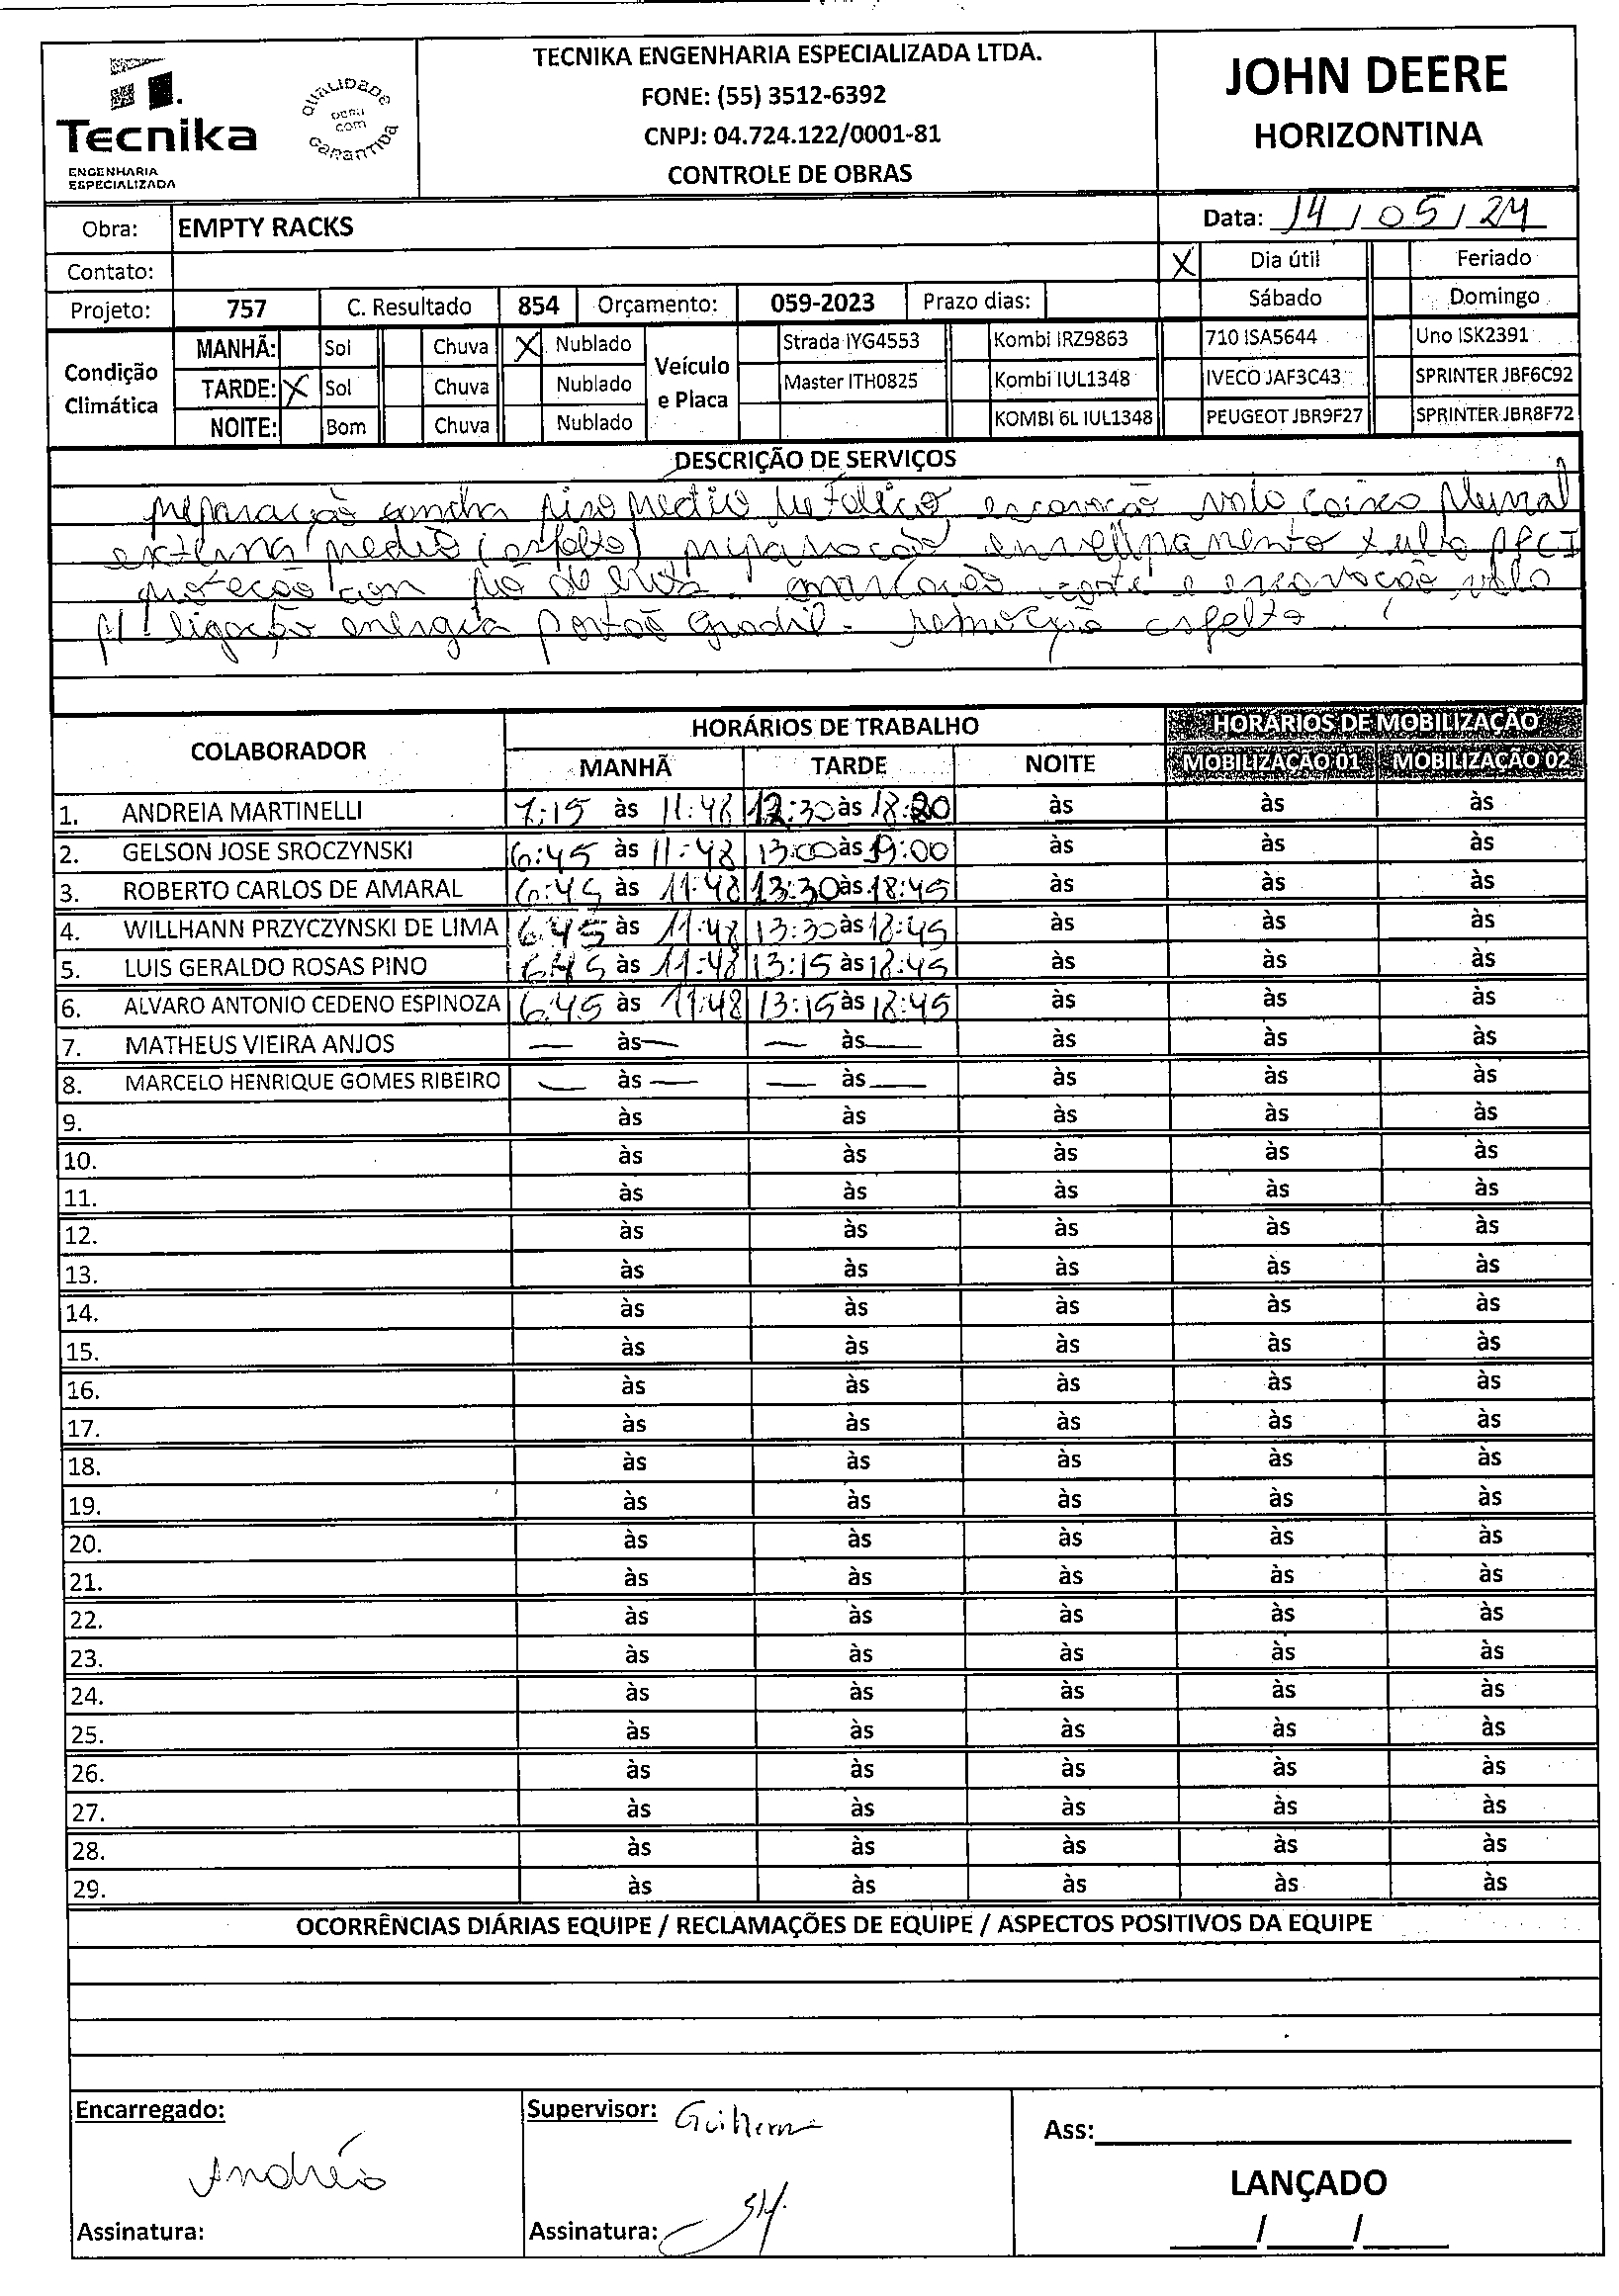 TECNIKA ENGENHARIA ESPECIALIZADA LTDA.
FONE: (55) 3512-6392
CNPJ: 04.724.122/0001-81
CONTROLE DE OBRAS
Tecnika
ENGENHARIA
ESPECIALIZADA
QUALIDADE
COM
GARANTIDA
JOHN DEERE
HORIZONTINA
Obra: EMPTY RACKS
Data: 14/05/24
Contato:
X Dia útil Feriado
Projeto: 757 C. Resultado 854 Orçamento: 059-2023 Prazo dias:
Sábado Domingo
Condição Climática
MANHÃ: Sol Chuva X Nublado
TARDE: X Sol Chuva Nublado
NOITE: Bom Chuva Nublado
Veículo e Placa
Strada IYG4553 Kombi IRZ9863 710 ISA5644 Uno ISK2391
Master ITH0825 Kombi IUL1348 IVECO JAF3C43 SPRINTER JBF6C92
KOMBI 6L IUL1348 PEUGEOT JBR9F27 SPRINTER JBR8F72
DESCRIÇÃO DE SERVIÇOS
preparação cancha piso medio escavação valo caixa pluvial
externa (asfalto) preparação envelopamento tubo PPCI
proteção con pó de brita. marcação corte e escavação valo
p/ ligação energia portão Gradil. remoção asfalto.
COLABORADOR HORÁRIOS DE TRABALHO HORÁRIOS DE MOBILIZAÇÃO
MANHÃ TARDE NOITE MOBILIZAÇÃO 01 MOBILIZAÇÃO 02
1. ANDREIA MARTINELLI 7:15 às 11:48 12:30 às 18:20 às às às
2. GELSON JOSE SROCZYNSKI 6:45 às 11:48 13:00 às 19:00 às às às
3. ROBERTO CARLOS DE AMARAL 6:45 às 11:48 13:30 às 18:45 às às às
4. WILLHANN PRZYCZYNSKI DE LIMA 6:45 às 11:48 13:30 às 18:45 às às às
5. LUIS GERALDO ROSAS PINO 6:45 às 11:48 13:15 às 18:45 às às às
6. ALVARO ANTONIO CEDENO ESPINOZA 6:45 às 11:48 13:15 às 18:45 às às às
7. MATHEUS VIEIRA ANJOS — às — — às — às às às
8. MARCELO HENRIQUE GOMES RIBEIRO — às — — às — às às às
9. às às às às às
10. às às às às às
11. às às às às às
12. às às às às às
13. às às às às às
14. às às às às às
15. às às às às às
16. às às às às às
17. às às às às às
18. às às às às às
19. às às às às às
20. às às às às às
21. às às às às às
22. às às às às às
23. às às às às às
24. às às às às às
25. às às às às às
26. às às às às às
27. às às às às às
28. às às às às às
29. às às às às às
OCORRÊNCIAS DIÁRIAS EQUIPE / RECLAMAÇÕES DE EQUIPE / ASPECTOS POSITIVOS DA EQUIPE
Encarregado: Supervisor: Guilherme
Ass:
Andréia
LANÇADO
Assinatura: Assinatura:
__/__/__